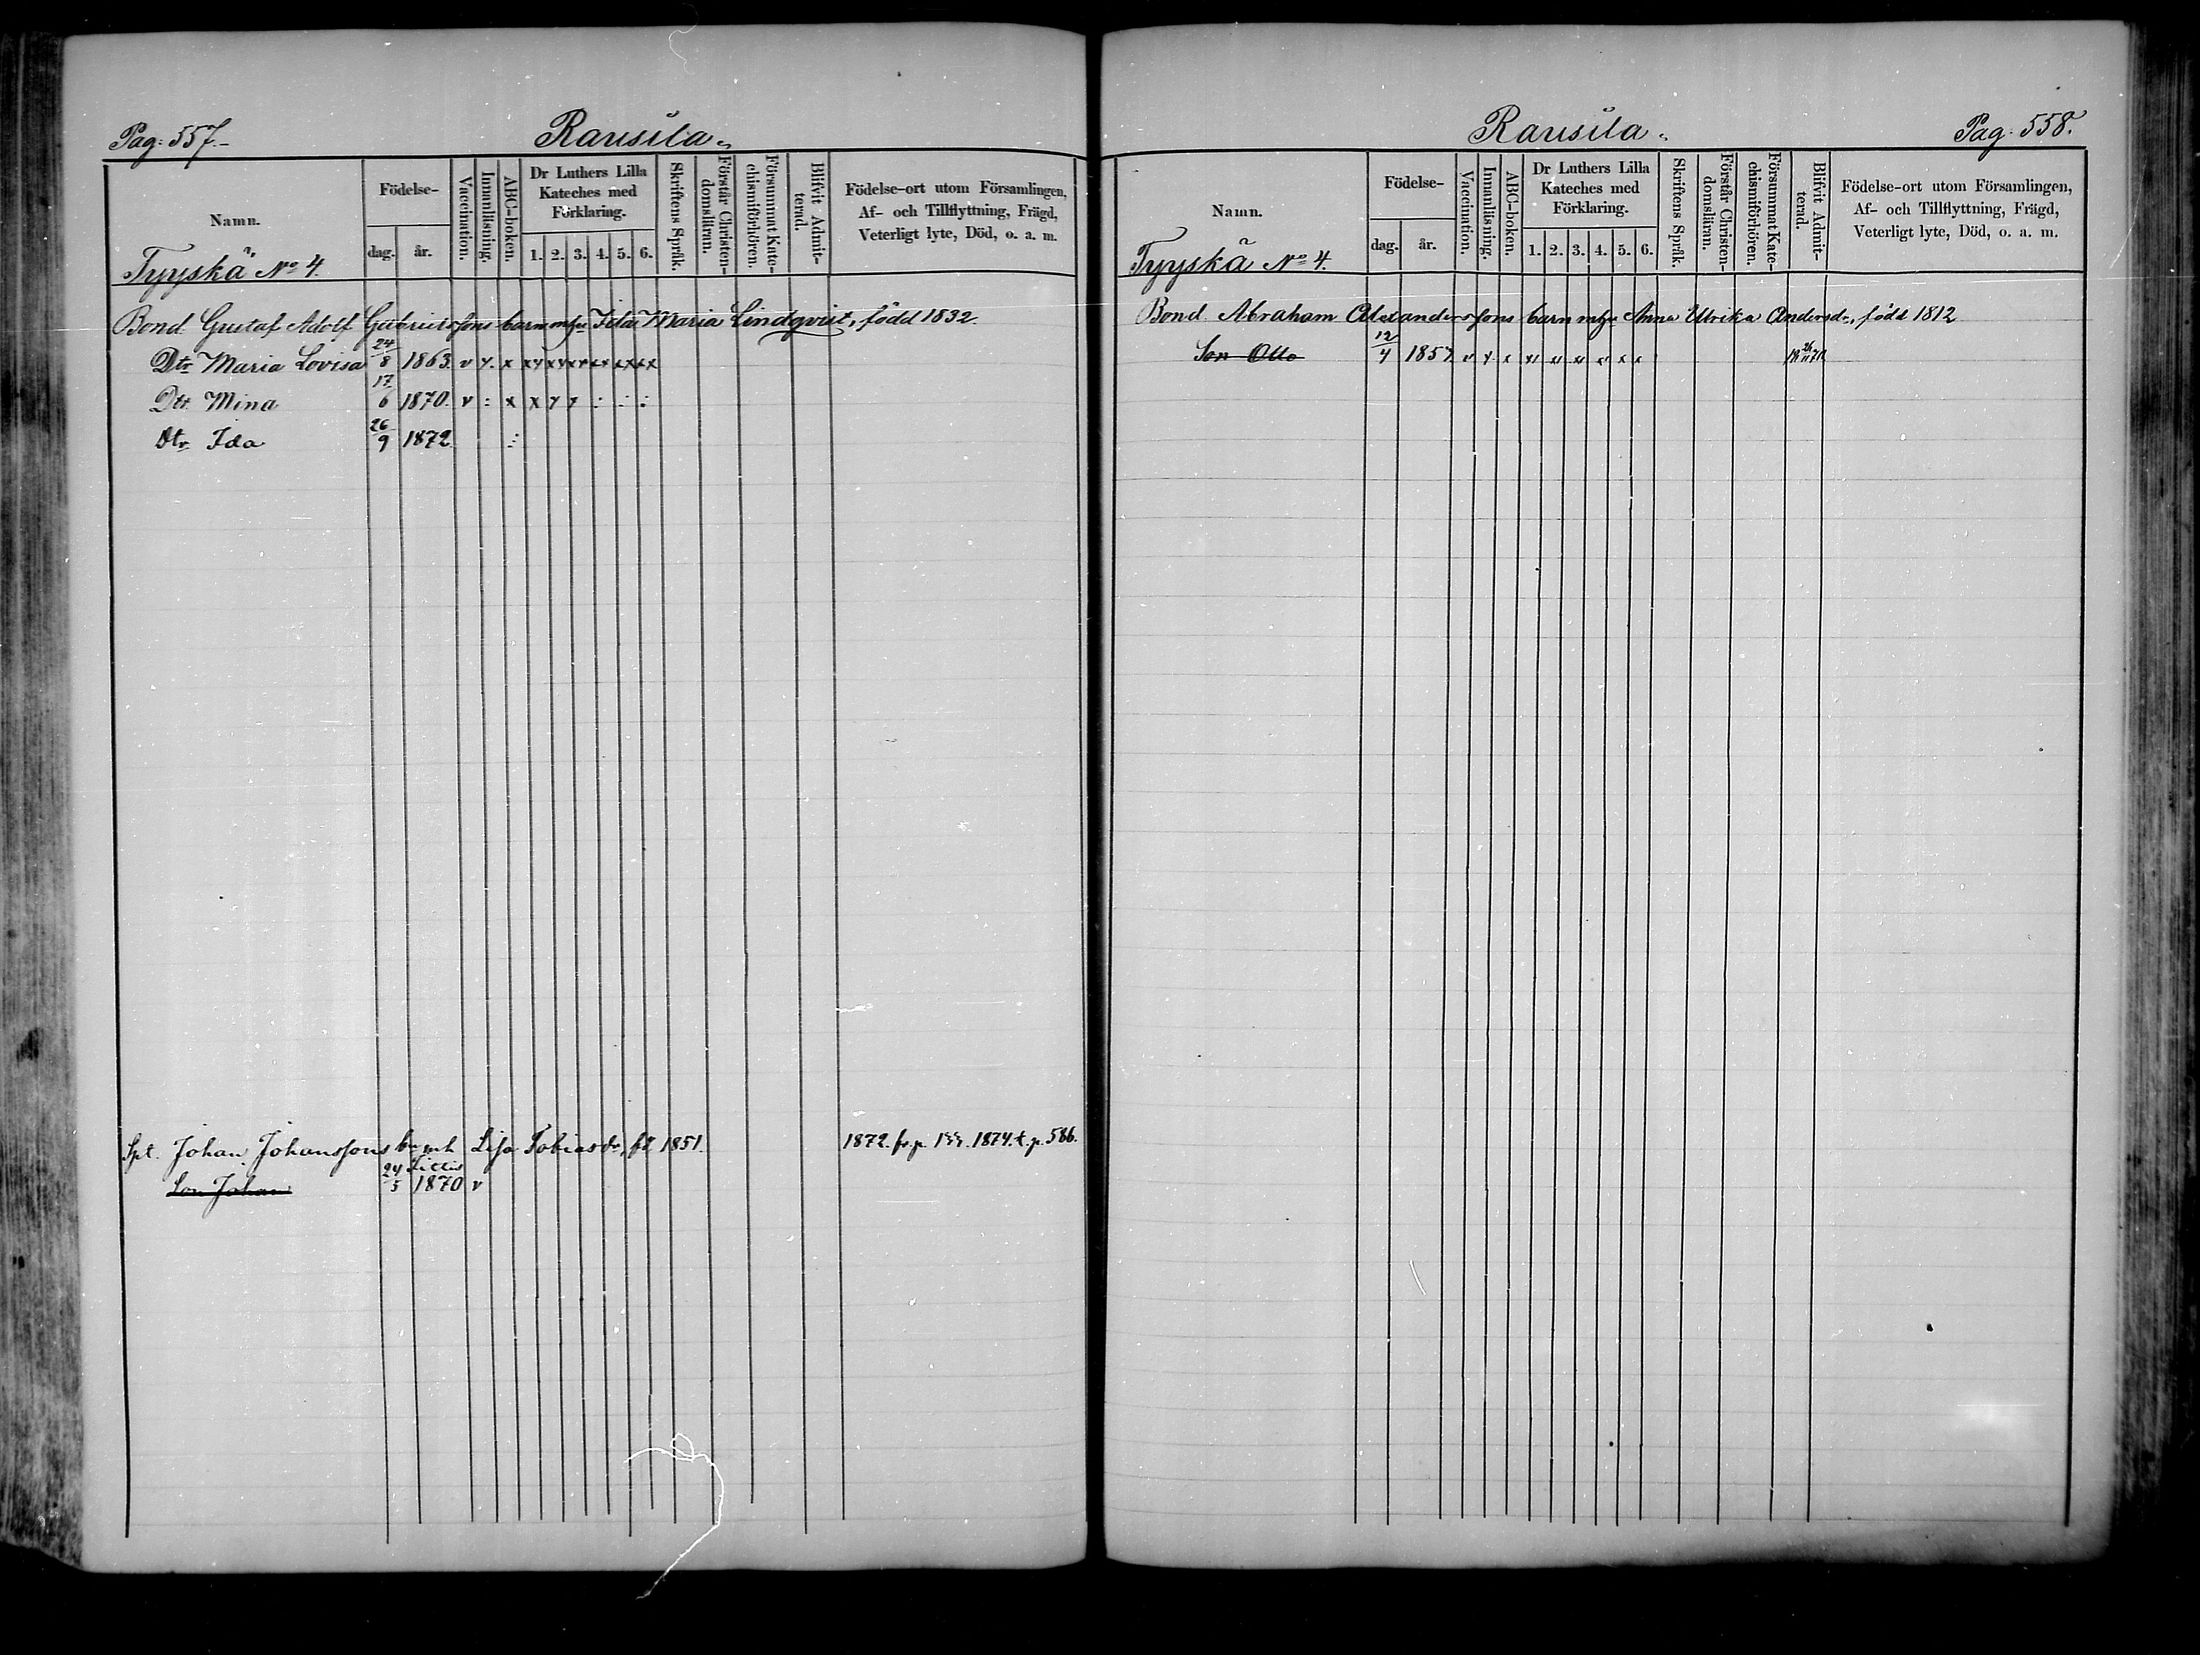 Pag: 557.
Rausila.
Namn.
Födelse-
dag.
år.
Vaccination.
Innanläsning.
ABC-boken.
Dr Luthers Lilla
Kateches med
Förklaring.
1. 2. 3. 4. 5. 6.
Skriftens Språk.
Förstår Christen-
domsläran.
Försummat Kate-
chismiförhören.
Blifvit Admit-
terad.
Födelse-ort utom Församlingen,
Af- och Tillflyttning, Frägd,
Veterligt lyte, Död, o. a. m.
Tyyskä No 4.
Bond Gustaf Adolf Gabrielssons barn mhu Maria Lindqvist, född 1832.
Dtr Maria Lovisa 24/8 1863. v x x x x x x x x
Dtr Mina 17/6 1870. v : x x
Dtr Ida 26/9 1872
Spt. Johan Johanssons bn mh Lisa Tobiasdr, fd 1851. 1872. fr. p. 1874. t. p. 586.
Son Johan 24/5 1870 v
Rausila.
Pag. 558.
Namn.
Födelse-
dag.
år.
Vaccination.
Innanläsning.
ABC-boken.
Dr Luthers Lilla
Kateches med
Förklaring.
1. 2. 3. 4. 5. 6.
Skriftens Språk.
Förstår Christen-
domsläran.
Försummat Kate-
chismiförhören.
Blifvit Admit-
terad.
Födelse-ort utom Församlingen,
Af- och Tillflyttning, Frägd,
Veterligt lyte, Död, o. a. m.
Tyyskä No 4.
Bond. Abraham Alexanderssons barn mhu Anna Ulrika Andersdr, född 1812
Son Otto 12/4 1857